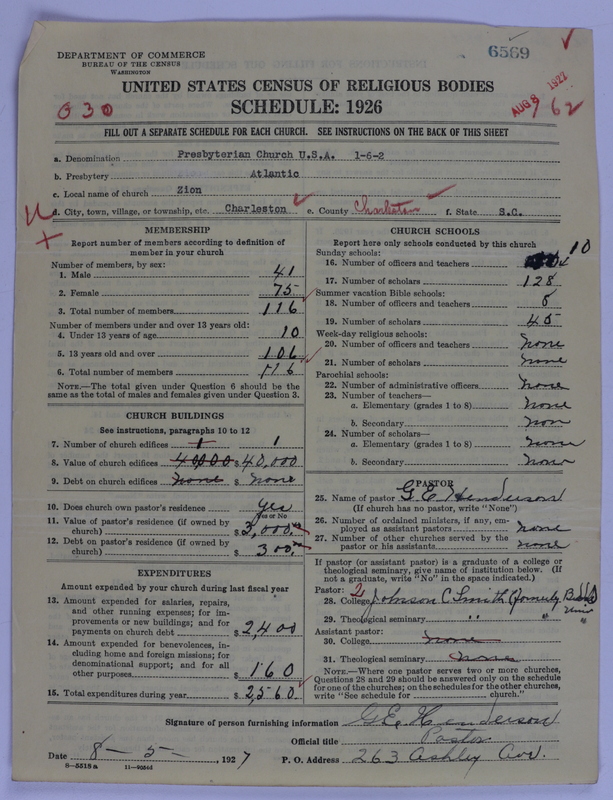 DEPARTMENT OF COMMERCE
BUREAU OF THE CENSUS
WASHINGTON
6569
UNITED STATES CENSUS OF RELIGIOUS BODIES
SCHEDULE: 1926
AUG 8 1927
G 30
162
FILL OUT A SEPARATE SCHEDULE FOR EACH CHURCH. SEE INSTRUCTIONS ON THE BACK OF THIS SHEET
a. Denomination Presbyterian Church U.S.A. 1-6-2
b. Presbytery Atlantic
c. Local name of church Zion
d. City, town, village, or township, etc. Charleston e. County Charleston f. State S.C.
MEMBERSHIP
Report number of members according to definition of
member in your church
Number of members, by sex:
1. Male 41
2. Female 75
3. Total number of members 116
Number of members under and over 13 years old:
4. Under 13 years of age 10
5. 13 years old and over 106
6. Total number of members 116
NOTE.—The total given under Question 6 should be
the same as the total of males and females given under Question 3.
CHURCH BUILDINGS
See instructions, paragraphs 10 to 12
7. Number of church edifices 1 1
8. Value of church edifices 40,000 $ 40,000
9. Debt on church edifices none $ none
10. Does church own pastor's residence yes
Yes or No
11. Value of pastor's residence (if owned by
church) $ 3,000
12. Debt on pastor's residence (if owned by
church) $ 300
EXPENDITURES
Amount expended by your church during last fiscal year
13. Amount expended for salaries, repairs,
and other running expenses; for im-
provements or new buildings; and for
payments on church debt $ 2,400
14. Amount expended for benevolences, in-
cluding home and foreign missions; for
denominational support; and for all
other purposes $ 160
15. Total expenditures during year $ 2560
CHURCH SCHOOLS
Report here only schools conducted by this church
Sunday schools:
16. Number of officers and teachers 10
17. Number of scholars 128
Summer vacation Bible schools:
18. Number of officers and teachers 5
19. Number of scholars 45
Week-day religious schools:
20. Number of officers and teachers none
21. Number of scholars none
Parochial schools:
22. Number of administrative officers none
23. Number of teachers—
a. Elementary (grades 1 to 8) none
b. Secondary non
24. Number of scholars—
a. Elementary (grades 1 to 8) none
b. Secondary none
PASTOR
25. Name of pastor G. E. Henderson
(If church has no pastor, write "None")
26. Number of ordained ministers, if any, em-
ployed as assistant pastors none
27. Number of other churches served by the
pastor or his assistants none
If pastor (or assistant pastor) is a graduate of a college or
theological seminary, give name of institution below. (If
not a graduate, write "No" in the space indicated.)
Pastor: 2
28. College Johnson C Smith (formerly Biddle
Univ
29. Theological seminary " " "
Assistant pastor:
30. College none
31. Theological seminary none
NOTE.—Where one pastor serves two or more churches,
Questions 28 and 29 should be answered only on the schedule
for one of the churches; on the schedules for the other churches,
write "See schedule for church."
Signature of person furnishing information G. E. Henderson
Official title Pastor
Date 8-5-, 1927 P. O. Address 263 Ashley Ave.
8-5518a